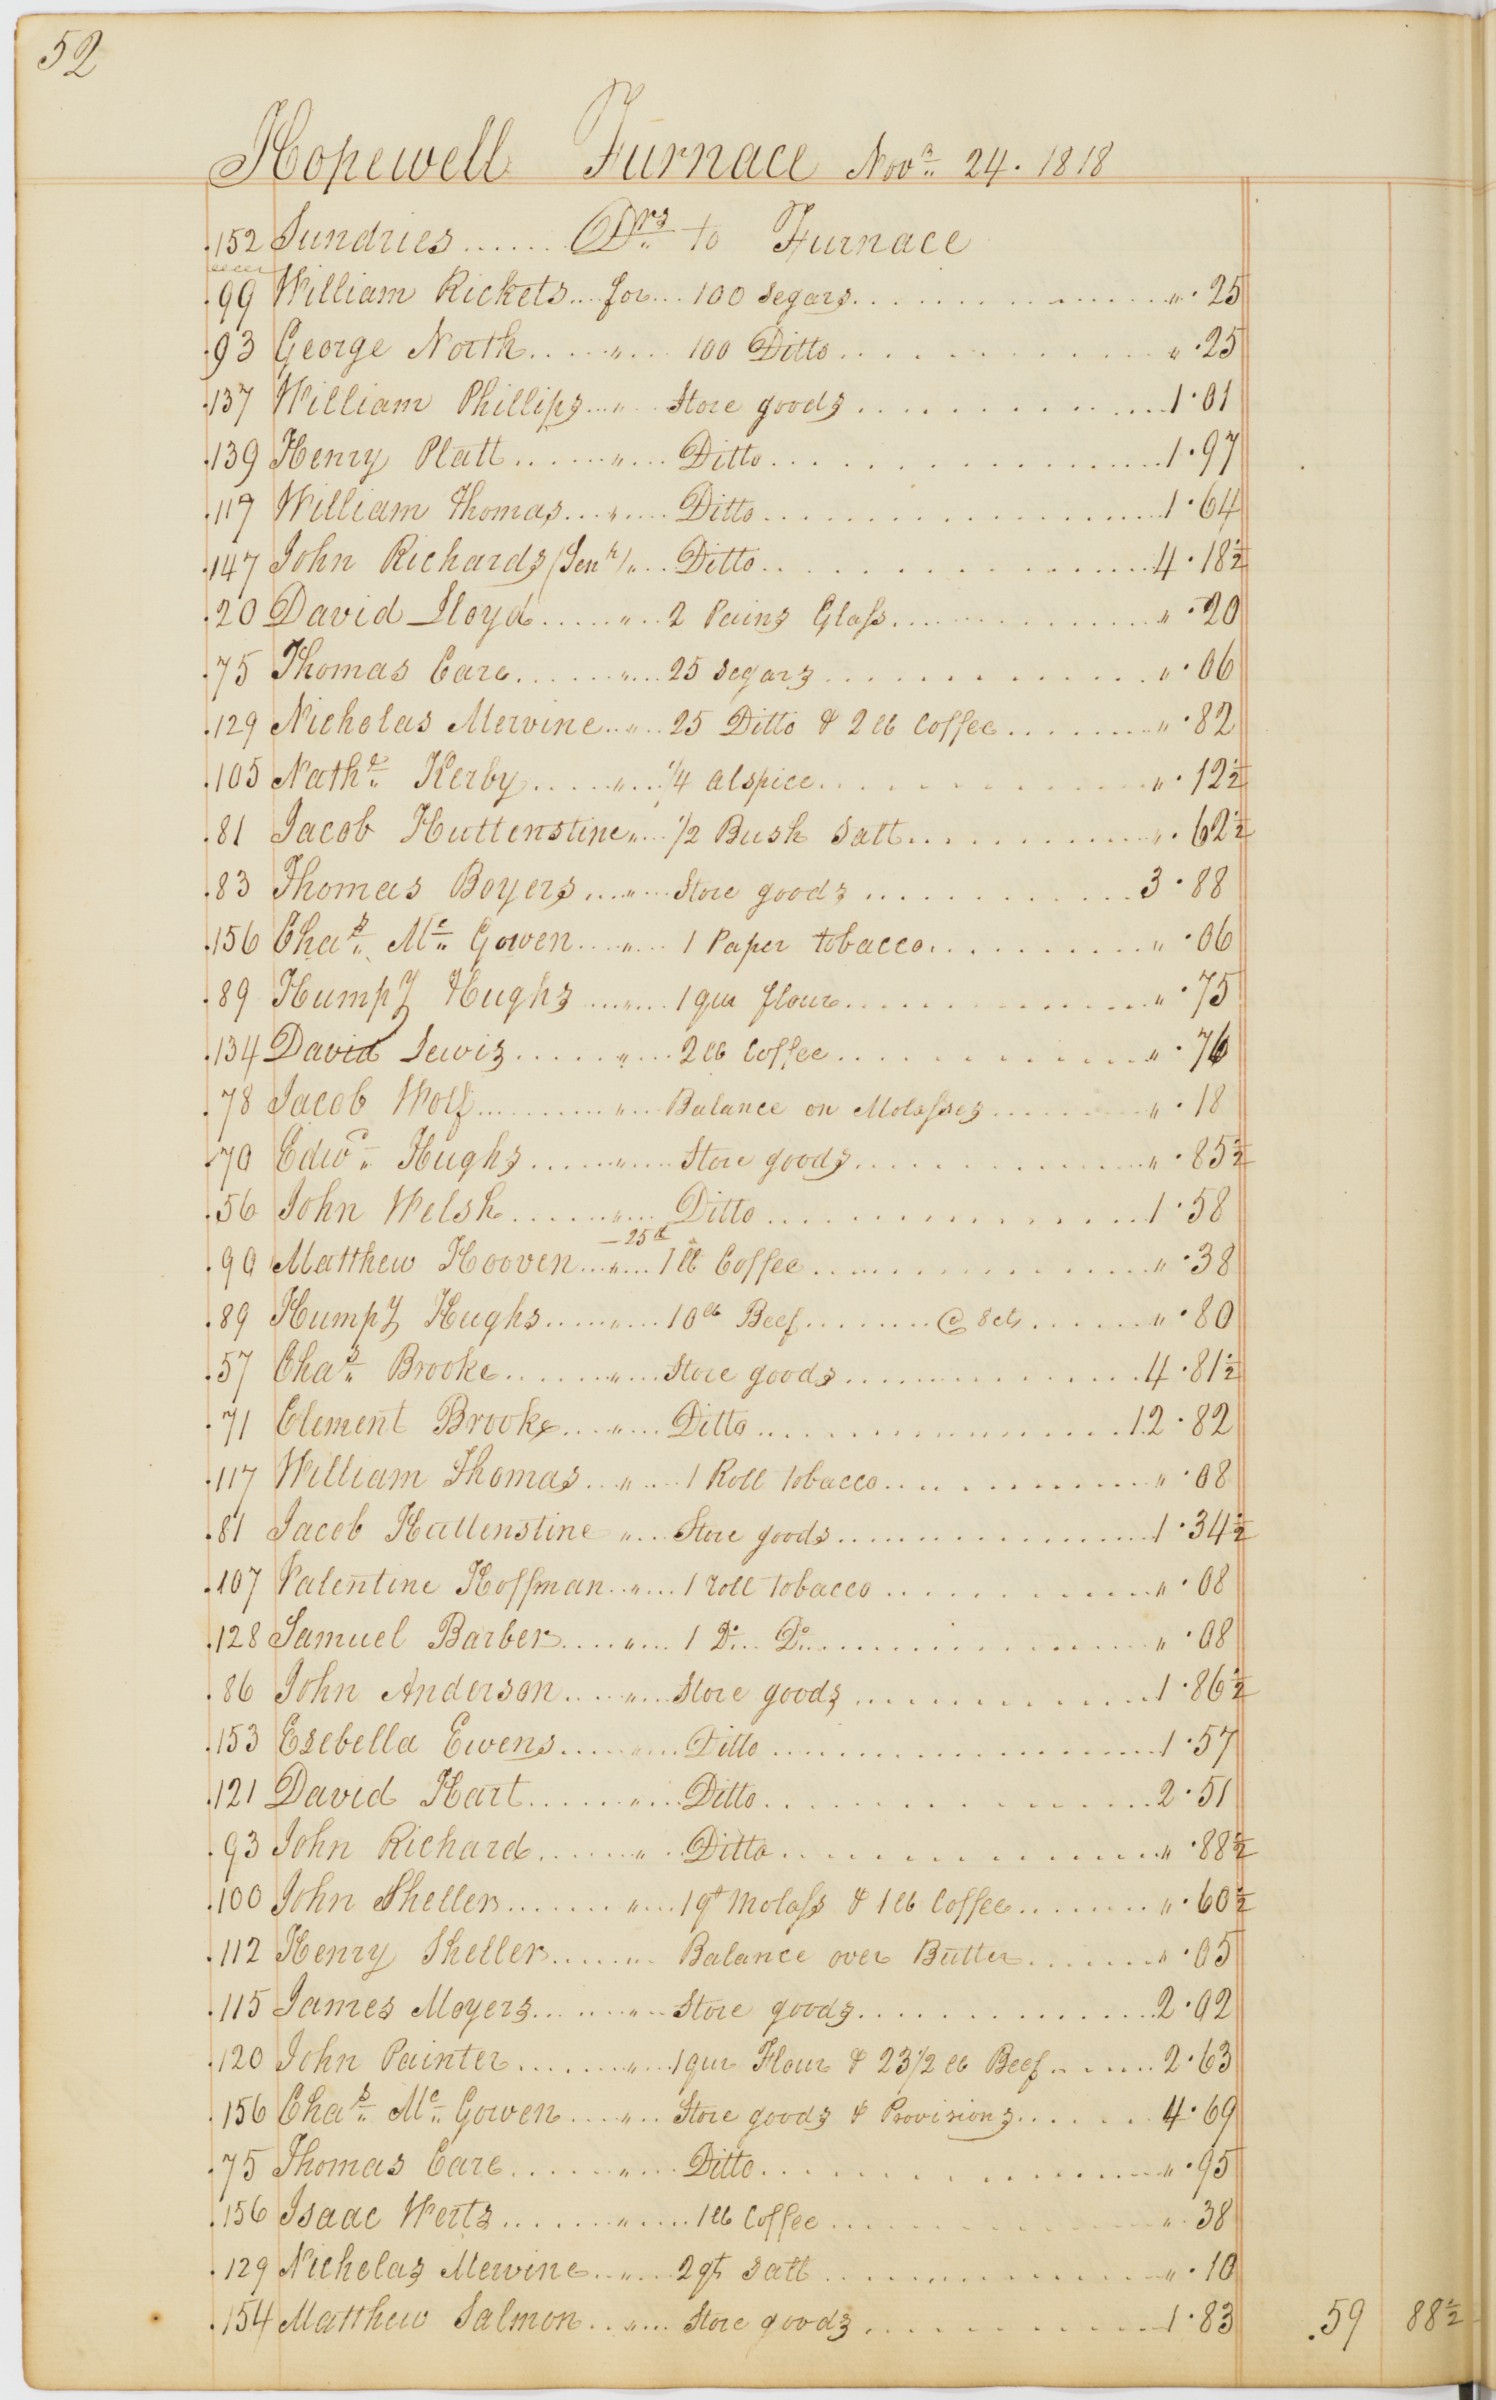 52
Hopewell Furnace Novr 24. 1818
152 Sundries ...... Drs to Furnace
99 William Rickets .... for ... 100 Segars ........ " . 25
93 George North ..... " .... 100 Ditto ........ " . 25
137 William Phillips ... " ... Store goods ........ 1 . 01
139 Henry Platt ...... " .... Ditto ........ 1 . 97
117 William Thomas ... " .... Ditto ........ 1 . 64
147 John Richards (Senr) " ... Ditto ........ 4 . 18½
20 David Lloyd ...... " ... 2 Pains Glass ........ " . 20
75 Thomas Care ...... " .... 25 Segars ........ " . 06
129 Nicholas Mervine .. " ... 25 Ditto & 2 lb Coffee ........ " . 82
105 Nathl Kerby ..... " .... ¼ alspice ........ " . 12½
81 Jacob Huttenstine " .... ½ Bush Salt ........ " . 62½
83 Thomas Boyers .... " .... Store goods ........ 3 . 88
156 Chas Mc Gowen .... " .... 1 Paper tobacco ........ " . 06
89 Humpy Hughs .... " .... 1 qur flour ........ " . 75
134 David Lewis ..... " .... 2 lb Coffee ........ " . 76
78 Jacob Wolf ........ " .... Balance on Molasses ........ " . 18
70 Edwd Hughs ...... " .... Store goods ........ " . 85½
56 John Welsh ...... " .... Ditto ........ 1 . 58
90 Matthew Hooven ... " .... 1 lb Coffee ........ " . 38
89 Humpy Hughs ..... " .... 10 lb Beef ........ @ 8 cts ...... " . 80
57 Chas Brooke ...... " .... Store goods ........ 4 . 81½
71 Clement Brooke .... " .... Ditto ........ 12 . 82
117 William Thomas ... " .... 1 Roll tobacco ........ " . 08
81 Jacob Huttenstine " .... Store goods ........ 1 . 34½
107 Valentine Hoffman .. " .... 1 roll tobacco ........ " . 08
128 Samuel Barber .... " .... 1 Do ... Do ........ " . 08
86 John Anderson .... " .... Store goods ........ 1 . 86½
153 Esebella Ewens ..... " .... Ditto ........ 1 . 57
121 David Hart ...... " .... Ditto ........ 2 . 51
93 John Richard ...... " .. Ditto ........ " . 88½
100 John Sheller ....... " .... 1 qt Molass & 1 lb Coffee ........ " . 60½
112 Henry Sheller ..... " .. Balance over Butter ........ " . 05
115 James Moyers ...... " ... Store goods ........ 2 . 02
120 John Painter ...... " .... 1 qur Flour & 23½ lb Beef ...... 2 . 63
156 Chas Mc Gowen .... " ... Store goods & Provisions ...... 4 . 69
75 Thomas Care ...... " .... Ditto ........ " . 95
156 Isaac Werts ...... " ..... 1 lb Coffee ........ " . 38
129 Nicholas Mervine .. " .... 2 qts Salt ........ " . 10
154 Matthew Salmon .. " .... Store goods ........ 1 . 83 59 88½